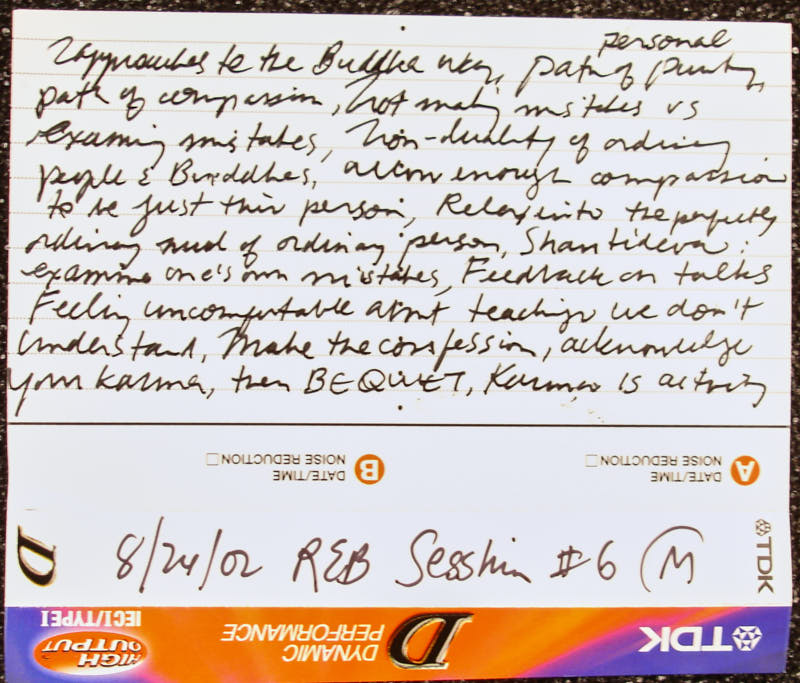 personal
2 approaches to the Buddha way, path of purity,
path of compassion, not making mistakes vs
examing mistakes, Non-duality of ordinary
people & Buddhas, allow enough compassion
to be just this person, Relax into the perfectly
ordinary mud of ordinary person, Shantideva:
examine one's own mistakes, Feedback on talks
Feeling uncomfortable about teachings we don't
understand, Make the confession, acknowledge
your karma, then BE QUIET, Karma is activity
B DATE/TIME
NOISE REDUCTION
A DATE/TIME
NOISE REDUCTION
D 8/24/02 REB Sesshin #6 M TDK
HIGH OUTPUT IECI/TYPE I
DYNAMIC PERFORMANCE D
TDK